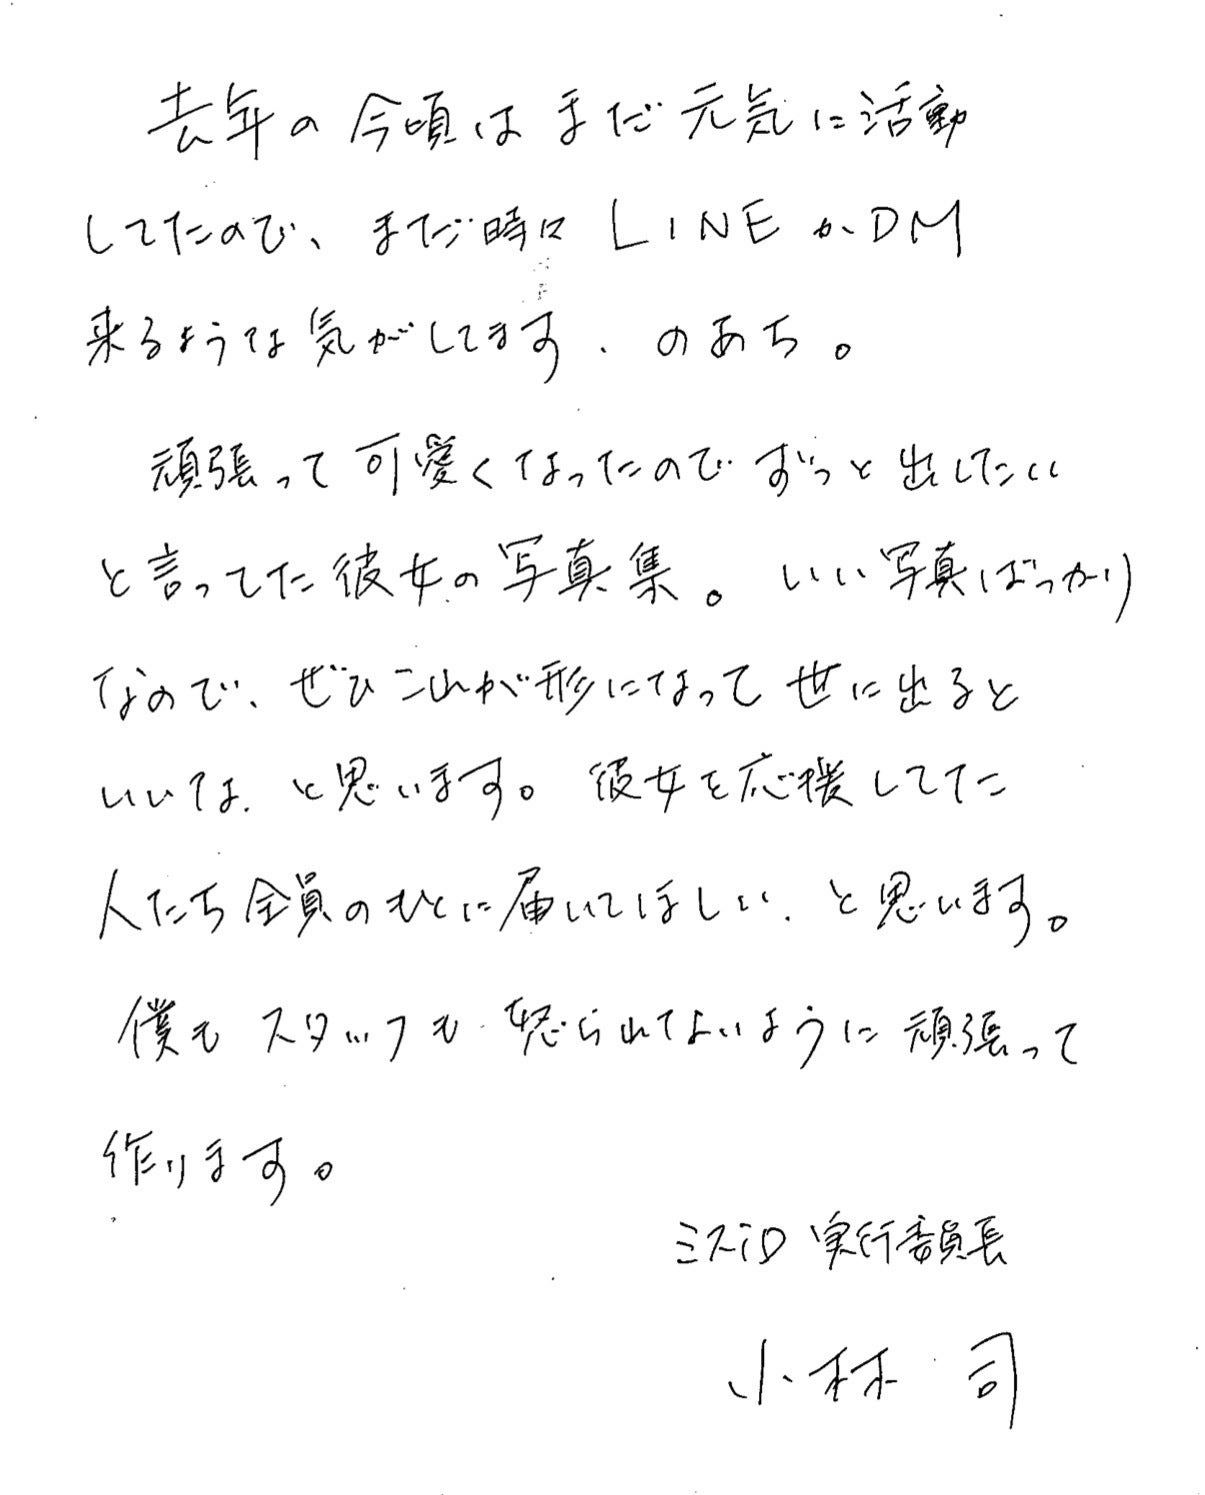 去年の今頃はまだ元気に活動
してたので、まだ時々LINEかDM
来るような気がしてます、のあち。
頑張って可愛くなったのでずっと出したい
と言ってた彼女の写真集。いい写真ばっかり
なので、ぜひこれが形になって世に出ると
いいな、と思います。彼女を応援してた
人たち全員のもとに届いてほしい、と思います。
僕もスタッフも怒られないように頑張って
作ります。
ミスiD 実行委員長
小林 司